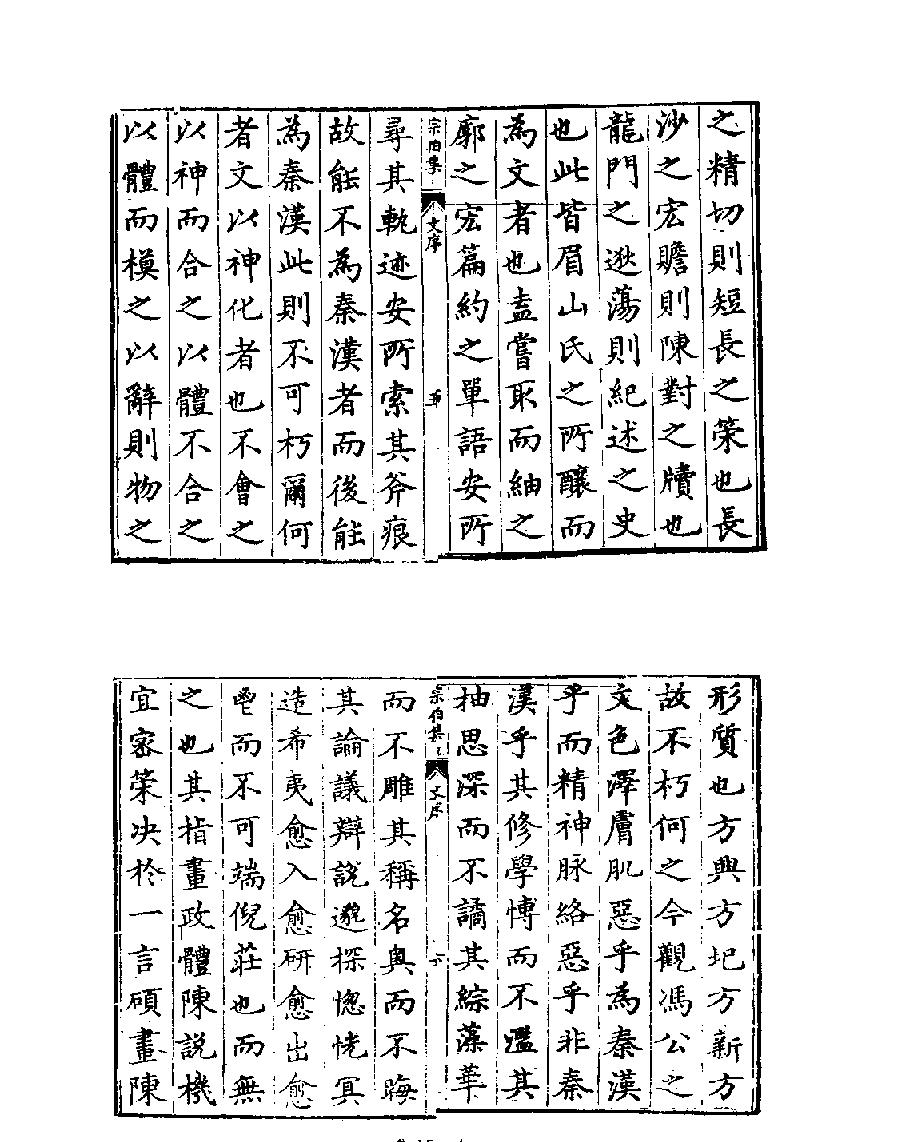 之精切則短長之筞也長
沙之宏贍則陳對之牘也
龍門之逖蕩則紀述之史
也此皆眉山氏之所釀而
為文者也盍嘗取而紬之
廓之宏篇約之單語安所
宗伯集
文序
五
尋其軌迹安所索其斧痕
故能不為秦漢者而後能
為秦漢此則不可朽爾何
者文以神化者也不會之
以神而合之以體不合之
以體而模之以辭則物之
形質也方興方圮方新方
故不朽何之今觀馮公之
文色澤膚肌惡乎為秦漢
乎而精神脉絡惡乎非秦
漢乎其修學博而不濫其
抽思深而不譎其綜藻華
宗伯集
文序
六
而不雕其稱名奥而不晦
其論議辯說邈探惚恍冥
造希夷愈入愈研愈出愈
而不可端倪莊也而無
之也其指畫政體陳說機
宜宻筞决於一言碩畫陳